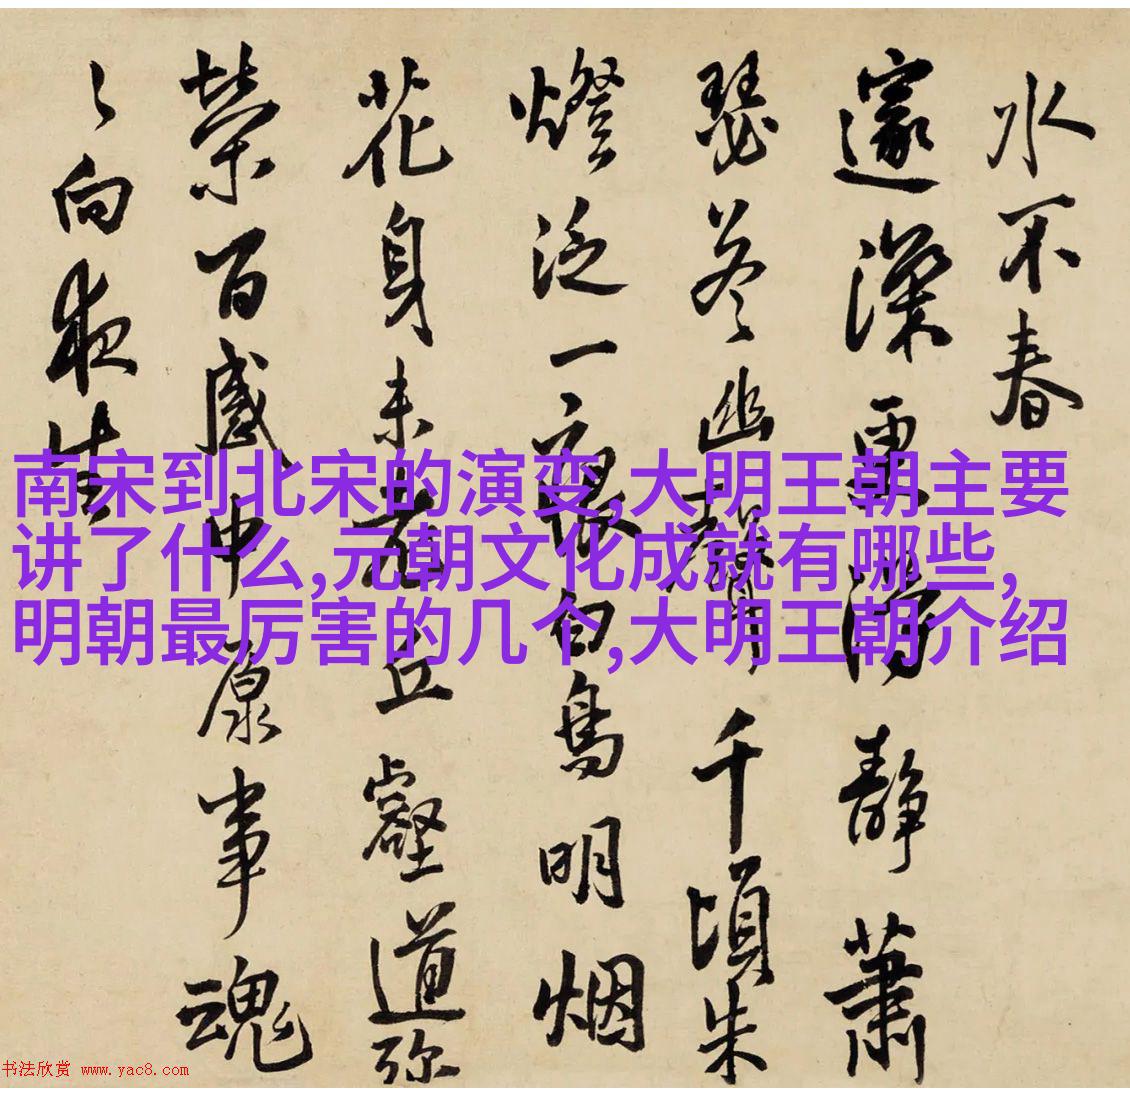 水不春
邃深更得靜蕭
瑟答幽聲千頃朱
燈泛一夜白鳥明烟
花身未老丘壑道弥
榮百感中原事魂
〻向夜
南宋到北宋的演变,大明王朝主要
讲了什么,元朝文化成就有哪些,
明朝最厉害的几个,大明王朝介绍
书法欣赏 www.yac8.com